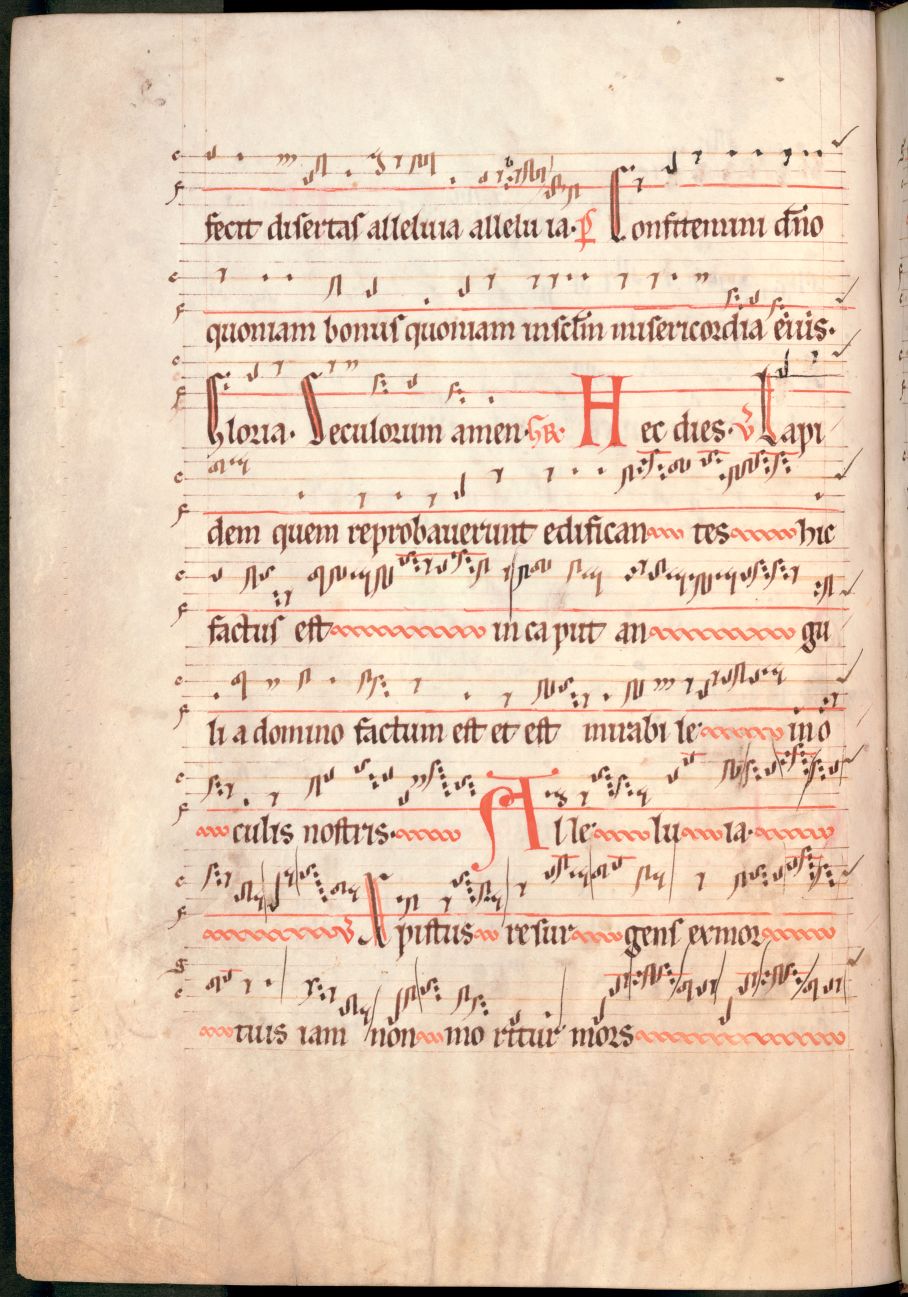 fecit disertas alleluia allelu ia· P̄s Confitemini dn̄o
quoniam bonus quoniam in sc̄lm misericordia eius·
Gloria· Seculorum amen· GR· Hec dies· V̄ Lapi
dem quem reprobauerunt edifican tes hic
factus est in ca put an gu
li a domino factum est et est mirabi le in o
culis nostris· Al le lu ia·
V̄ Xpistus resur gens ex mor
tuis iam non mo ritur mors